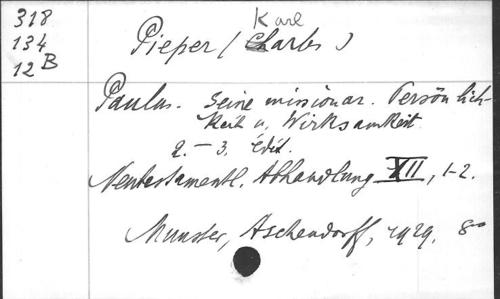 318
134
12 B
Karl
Pieper (Charles)
Paulus. Seine missionar. Persönlich-
keit u. Wirksamkeit
2.-3. édit.
Neutestamentl. Abhandlung XII, 1-2.
Munster, Aschendorff, 1929, 8°